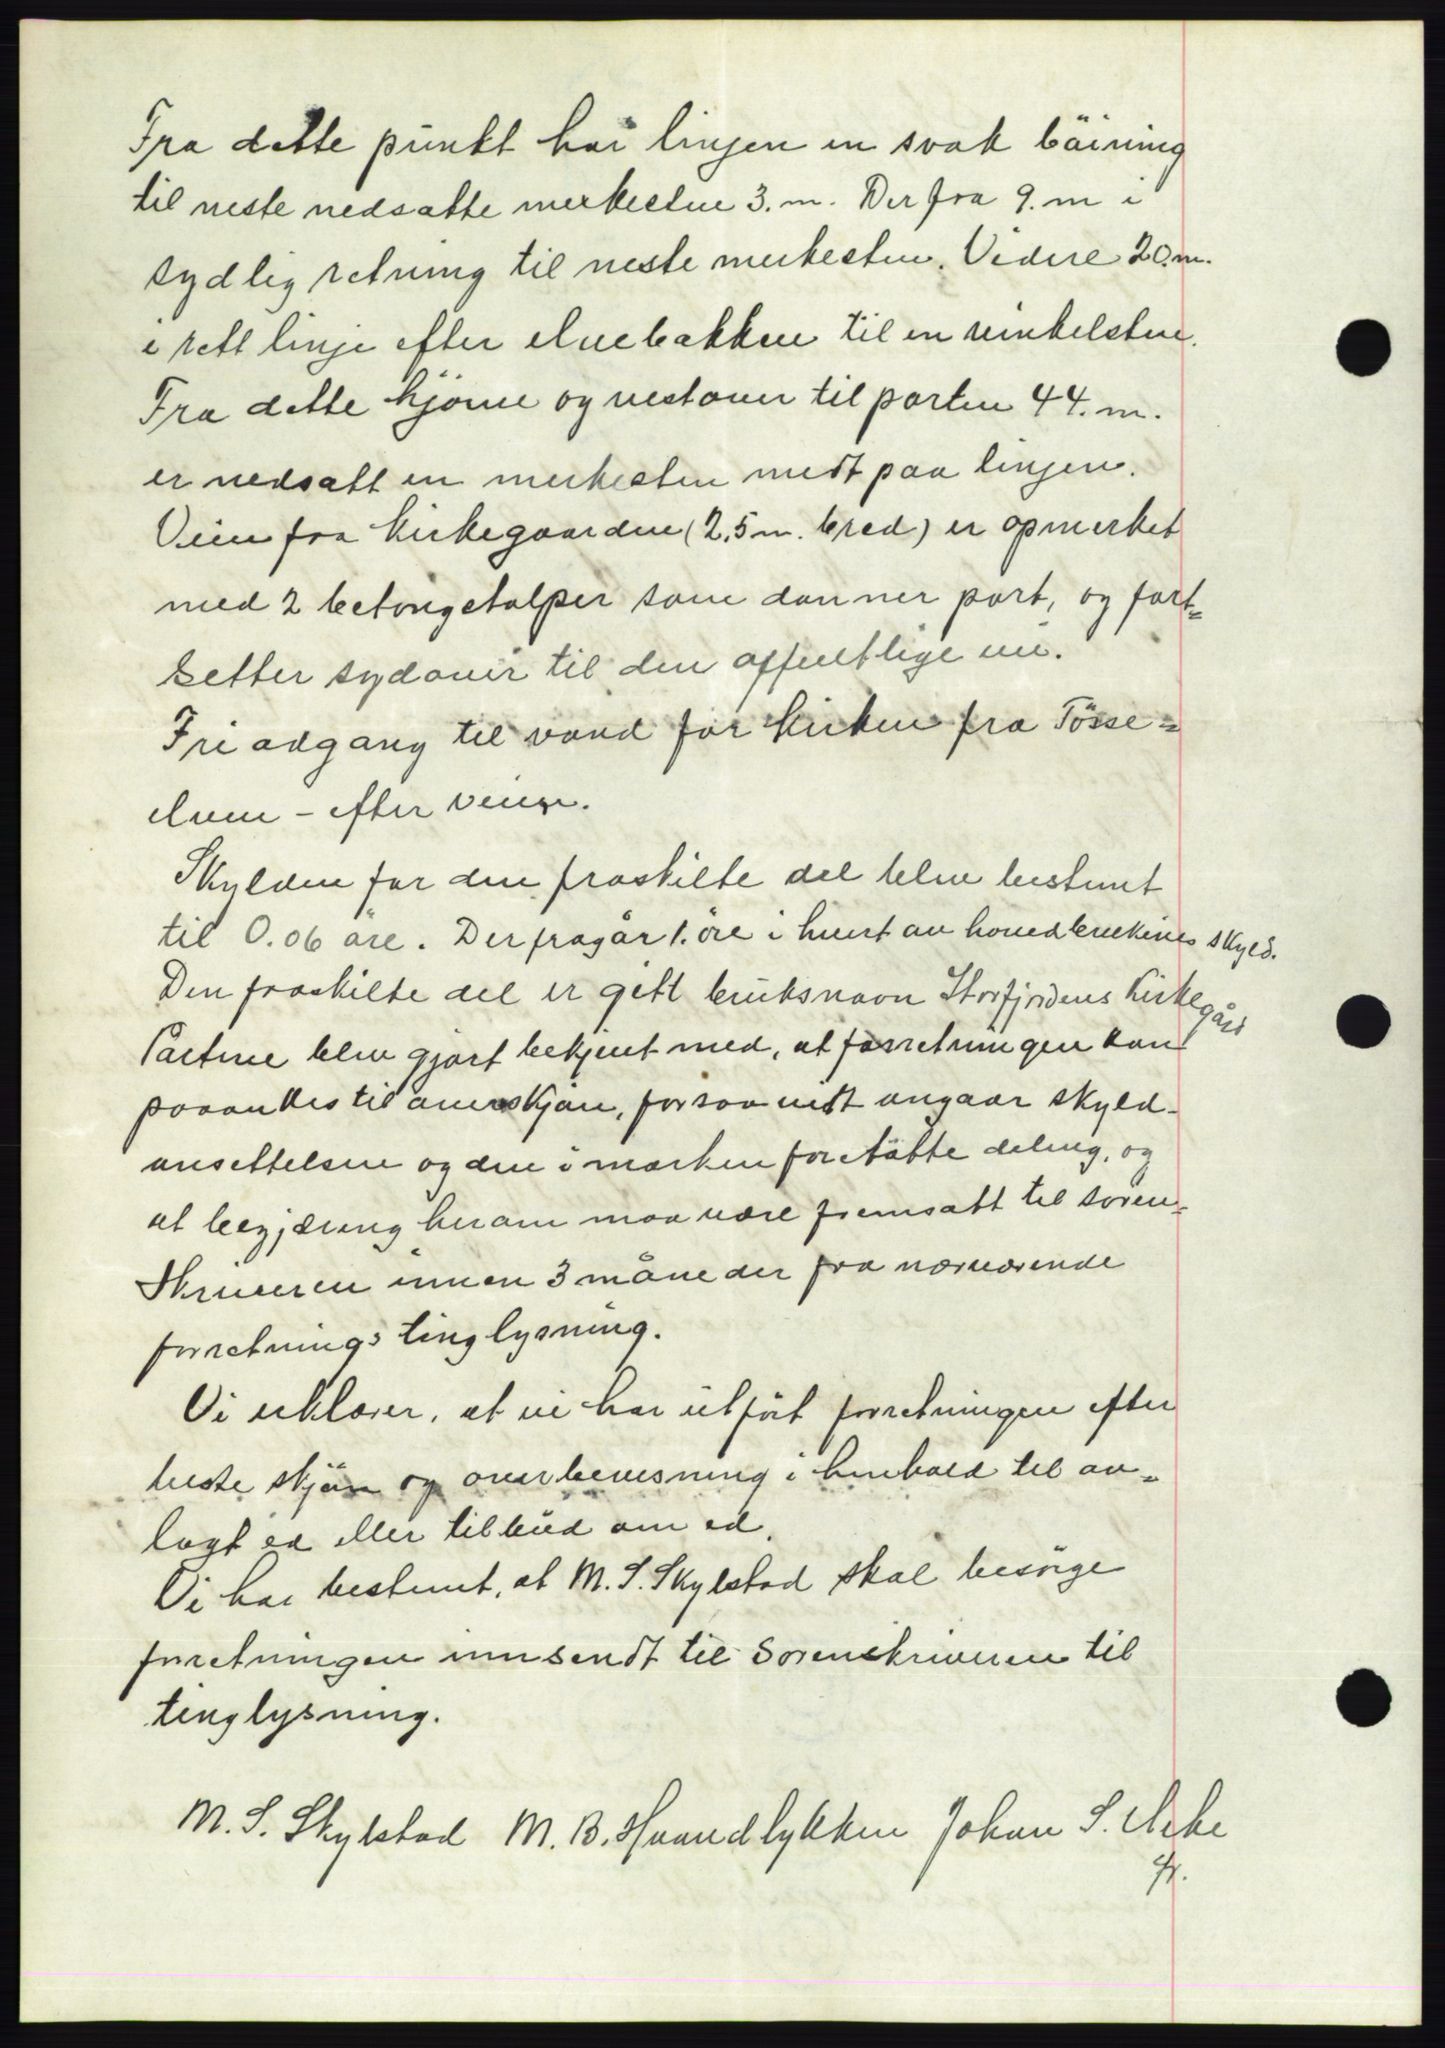 Fra dette punkt har linjen en svak böining
til neste nedsatte merkesten 3. m. Der fra 9. m i
sydlig retning til neste merkesten. Videre 20. m.
i rett linje efter elvebakken til en vinkelsten.
Fra dette hjörne og vestover til porten 44. m.
er nedsatt en merkesten midt paa linjen.
Veien fra Kirkegaarden (2,5 m. bred) er opmerket
med 2 betongstolper som danner port, og fort=
setter sydover til den offentlige vei.
Fri adgang til vand for Kirken fra Tösse=
elven - efter veien.
Skylden for den fraskilte del blev bestemt
til 0.06 öre. Der fragår 1. öre i hvert av hovedbrukenes skyld.
Den fraskilte del er gitt bruksnavn Storfjordens Kirkegård
Partene blev gjort bekjent med, at forretningen kan
paaankes til overskjön, forsaavidt angaar skyld-
ansettelsen og den i marken foretatte deling, og
at begjæring herom maa være fremsatt til soren=
skriveren innen 3 måneder fra nærværende
forretnings tinglysning.
Vi erklærer, at vi har utfört forretningen efter
beste skjön og overbevisning i henhold til av=
lagt ed eller tilbud om ed.
Vi har bestemt, at M. S. Skylstad skal besörge
forretningen innsendt til Sorenskriveren til
tinglysning.
M. S. Skylstad M. B. Haandlykken Johan S.